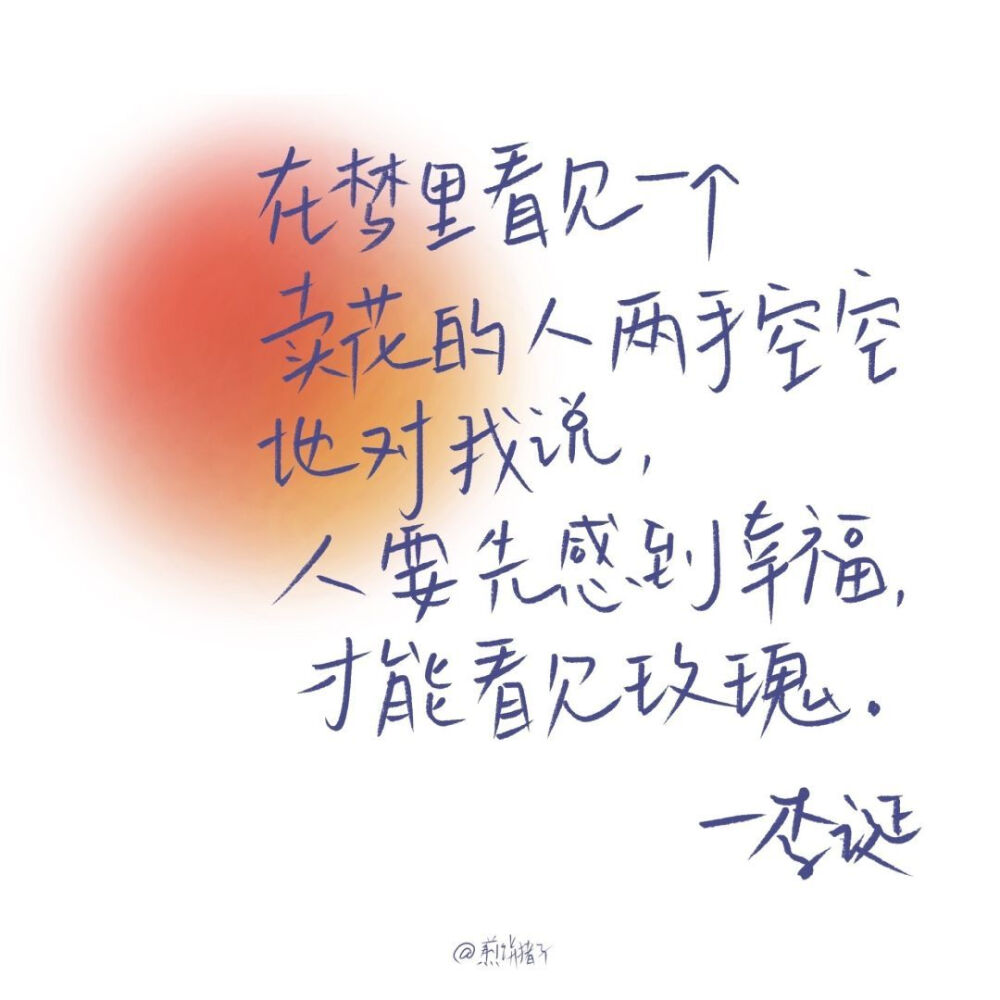 在梦里看见一个
卖花的人两手空空
地对我说,
人要先感到幸福,
才能看见玫瑰.
—李诞
@煎饼猪子